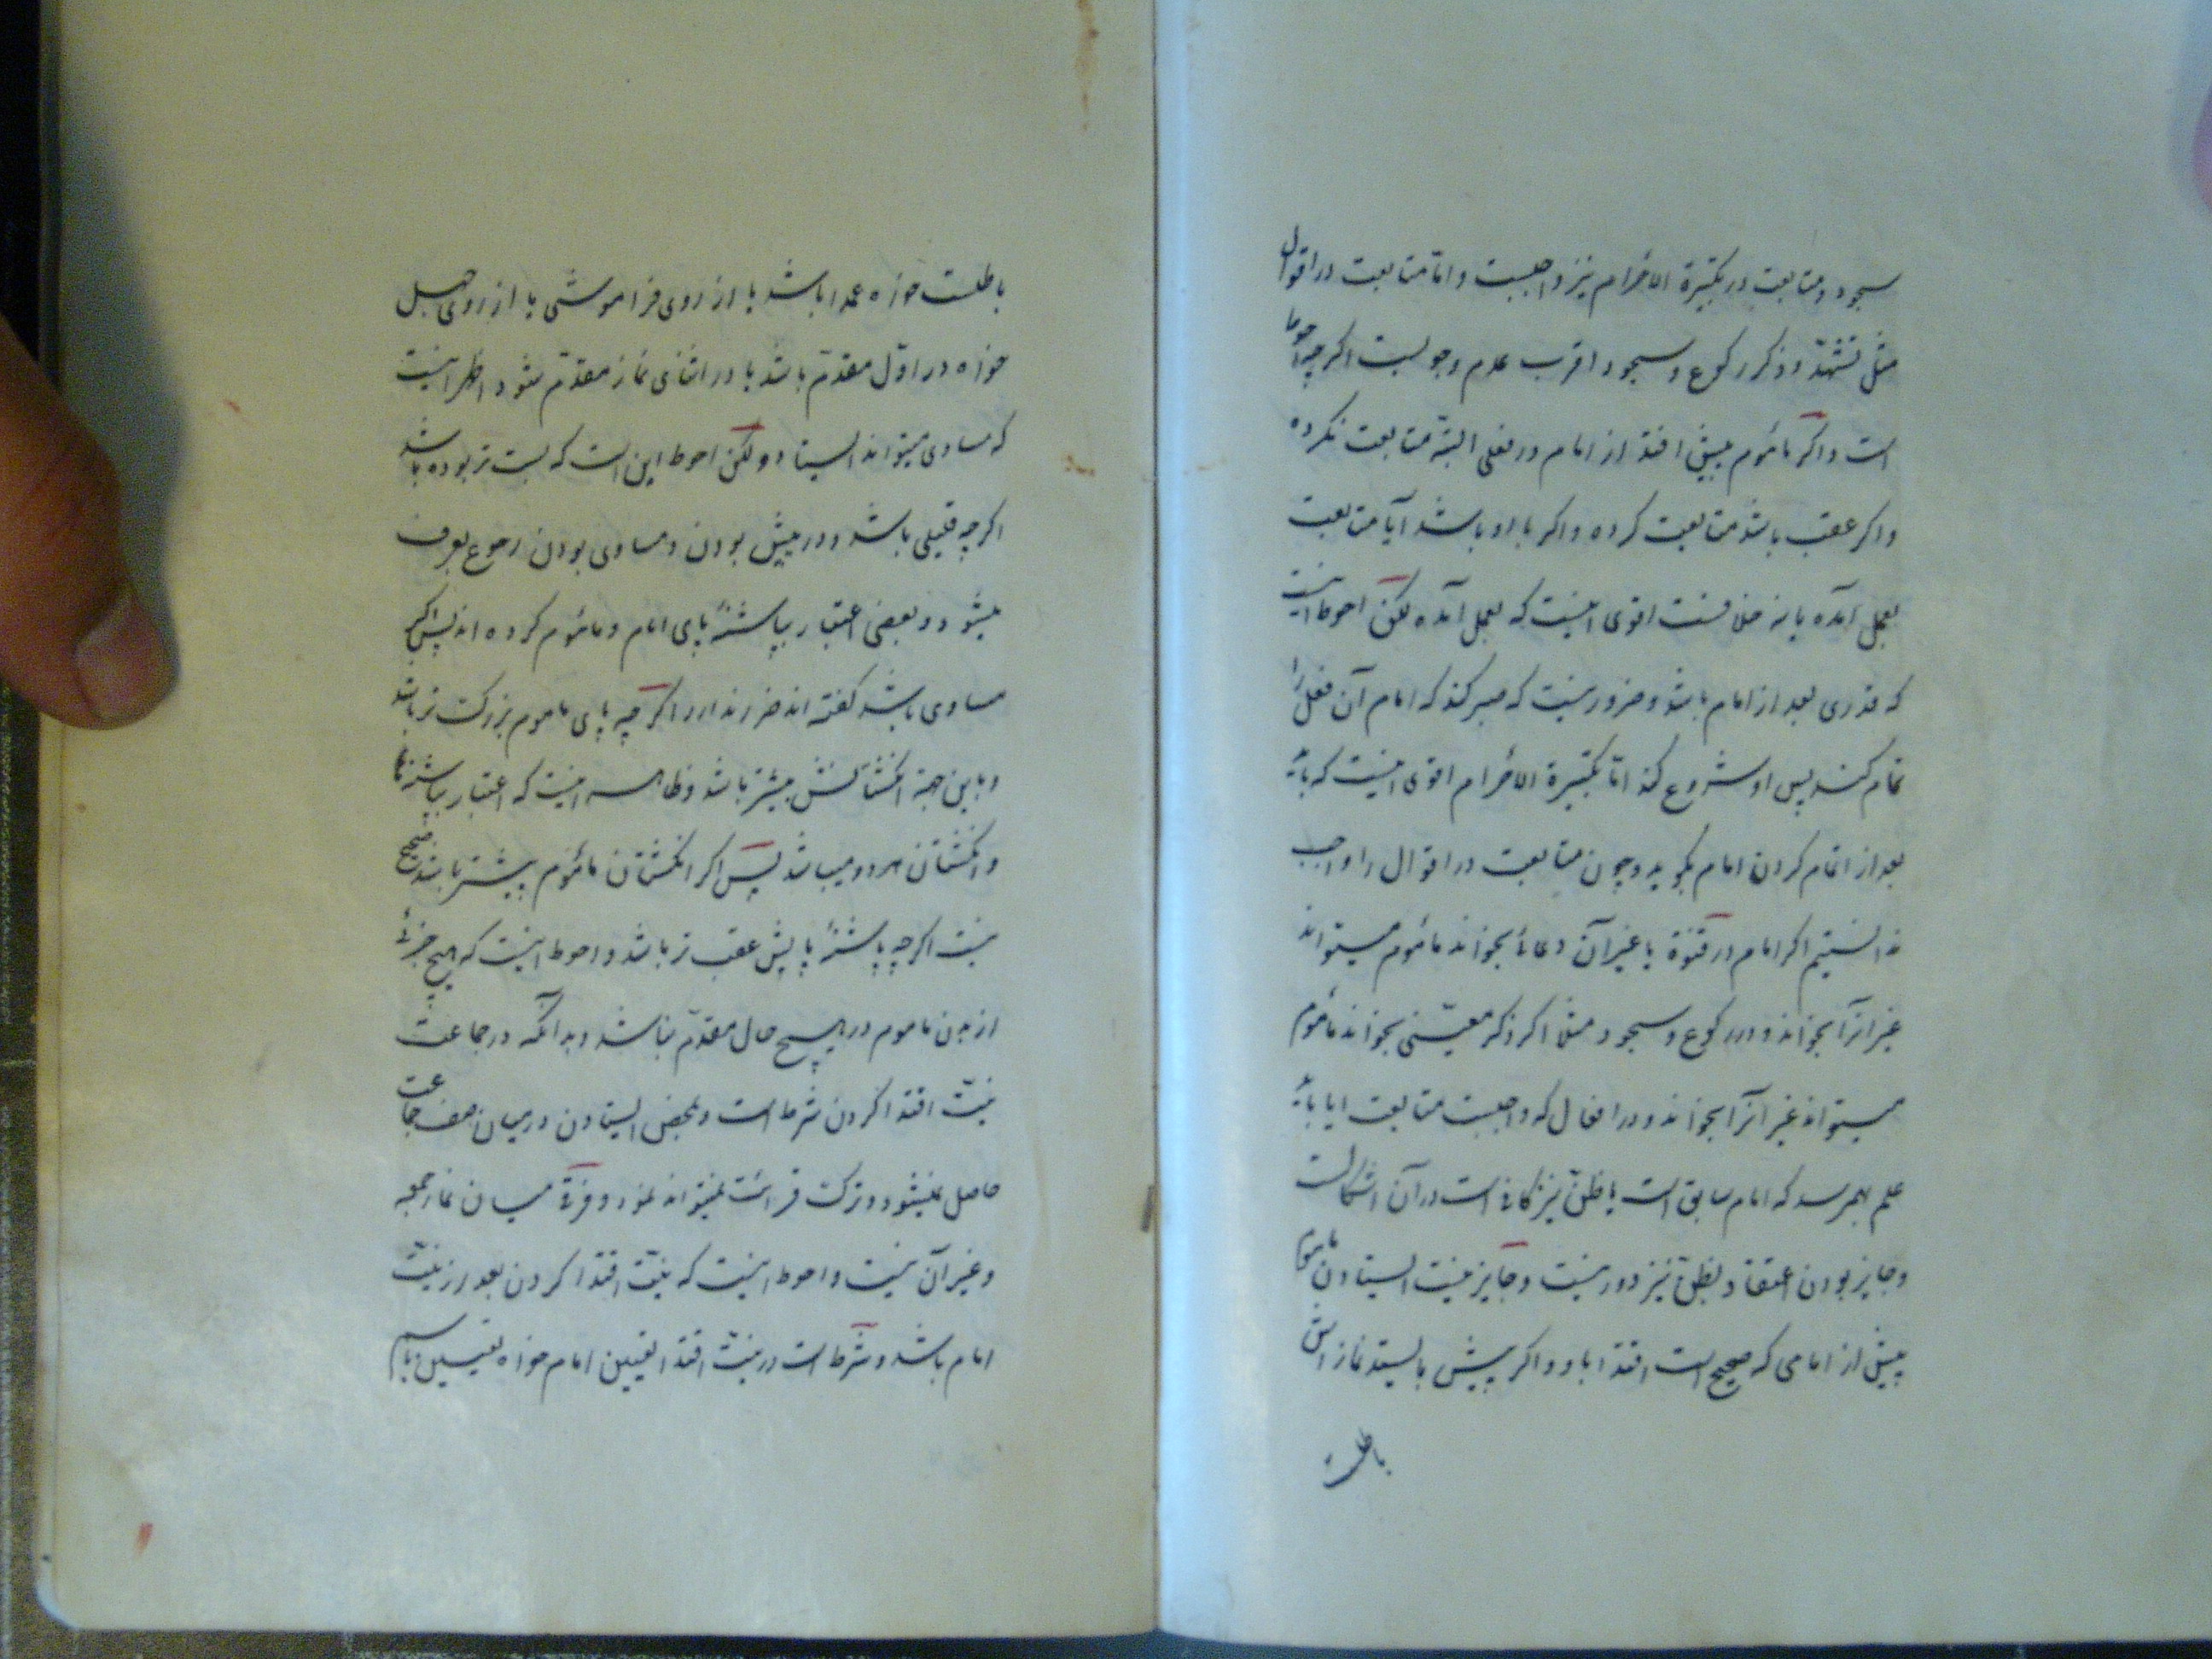 سجود و متابعت در تکبیرة الاحرام نیز واجبست و اما متابعت در اقوال
مثل تشهّد و ذکر رکوع و سجود اقرب عدم وجوبست اکرچه احوط
است و اکر مأموم پیش افتد از امام در فعلی البتّه متابعت نکرده
و اکر عقب باشد متابعت کرده و اکر با او باشد آیا متابعت
بعمل آمده یا نه خلافست اقوی اینست که بعمل آمده لکن احوط اینست
که قدری بعد از امام باشد و ضرور نیست که صبر کند که امام آن فعل را
تمام کند پس او شروع کند امّا تکبیرة الاحرام اقوی اینست که باید
بعد از اتمام کردن امام بکوید و چون متابعت در اقوال را واجب
ندانستیم اکر امام در قنوة یا غیر آن دعائی بخواند مأموم میتواند
غیر انرا بخواند و در رکوع و سجود مثلا اکر ذکر معیّنی بخواند مأموم
میتواند غیر آنرا بخواند و در افعال که واجبست متابعت ایا باید
علم بهمرسد که امام سابق است یا ظنّ نیز کافی است در آن اشکالست
و جایز بودن اعتقاد بظنّ نیز دور نیست و جایز نیست ایستادن مأموم
پیش از امامی که صحیح است اقتدا باو و اکر پیش بایستد نماز اش
باطلست
باطلست خواه عمدا باشد یا از روی فراموشی یا از روی جهل
خواه در اوّل مقدّم باشد یا در اثنای نماز مقدّم شود اظهر اینست
که مساوی میتواند ایستاد و لکن احوط این است که پست تر بوده باشد
اکرچه قلیلی باشد و در پیش بودن و مساوی بودن رجوع بعرف
میشود و بعضی اعتبار بپاشنۀ پای امام و مأموم کرده اند پس اکر
مساوی باشد کفته اند ضرر ندارد اکرچه پای ماموم بزرکت تر باشد
و باین جهة انکشتانش پیشتر باشد و ظاهر اینست که اعتبار بپاشنه
و انکشتان هر دو میباشد پس اکر انکشتان مأموم پیشتر باشد صحیح
نیست اکرچه پاشنۀ پایش عقب تر باشد و احوط اینست که هیچ جزئی
از بدن ماموم در هیچ حال مقدّم نباشد و بدانکه در جماعت
نیّت اقتدا کردن شرط است و بمحض ایستادن در میان صف جماعت
حاصل نمیشود و ترک قرائت نمیتواند نمود و فرقی میان نماز جمعه
و غیر آن نیست و احوط اینست که نیّت اقتدا کردن بعد از نیّت
امام باشد و شرط است در نیّت اقتدا تعیین امام خواه تعیین باسم